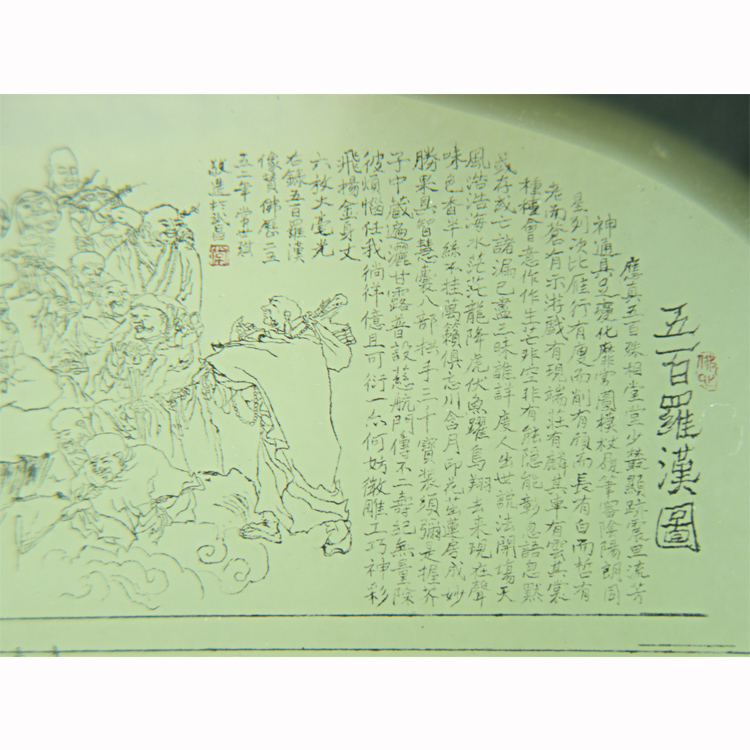 五百羅漢圖
應真五百殊相堂堂少叢顯跡震旦流芳
神通具足變化靡窮鳳模杖履筆寫陰陽朗同
星列次比雁行有臾而削有頎而長有白而皙有
老而蒼有示游戲有現端莊有麟其車有雲其裳
種種會意作作生芒非空非有能隱能彰忽語忽默
或存或亡諸漏已盡三昧誰詳廣人出世說法開場天
風浩浩海水茫茫龍降虎伏魚躍鳥翔去來現在聲
味色香半絲不挂萬籟俱忘川含月印花坐蓮房成妙
勝果具智慧囊八部拱手三千寶裝須彌無握芥
子中藏遍灑甘露普設慈航門傳不二壽紀無量險
彼煩惱任我徜徉億且可衍一亦何妨微雕工巧神彩
飛揚金身丈
六放大毫光
右錄五百羅漢
像贊佛歷二五
五二年常世琪
敬造於